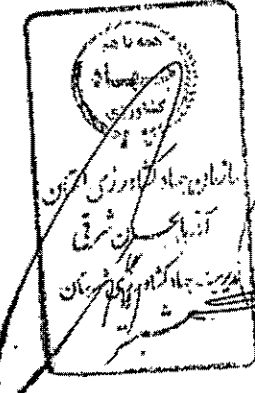 همه با هم
جهاد
کشاورزی
سازمان جهاد کشاورزی استان
آذربایجان شرقی
مدیریت جهاد کشاورزی شهرستان